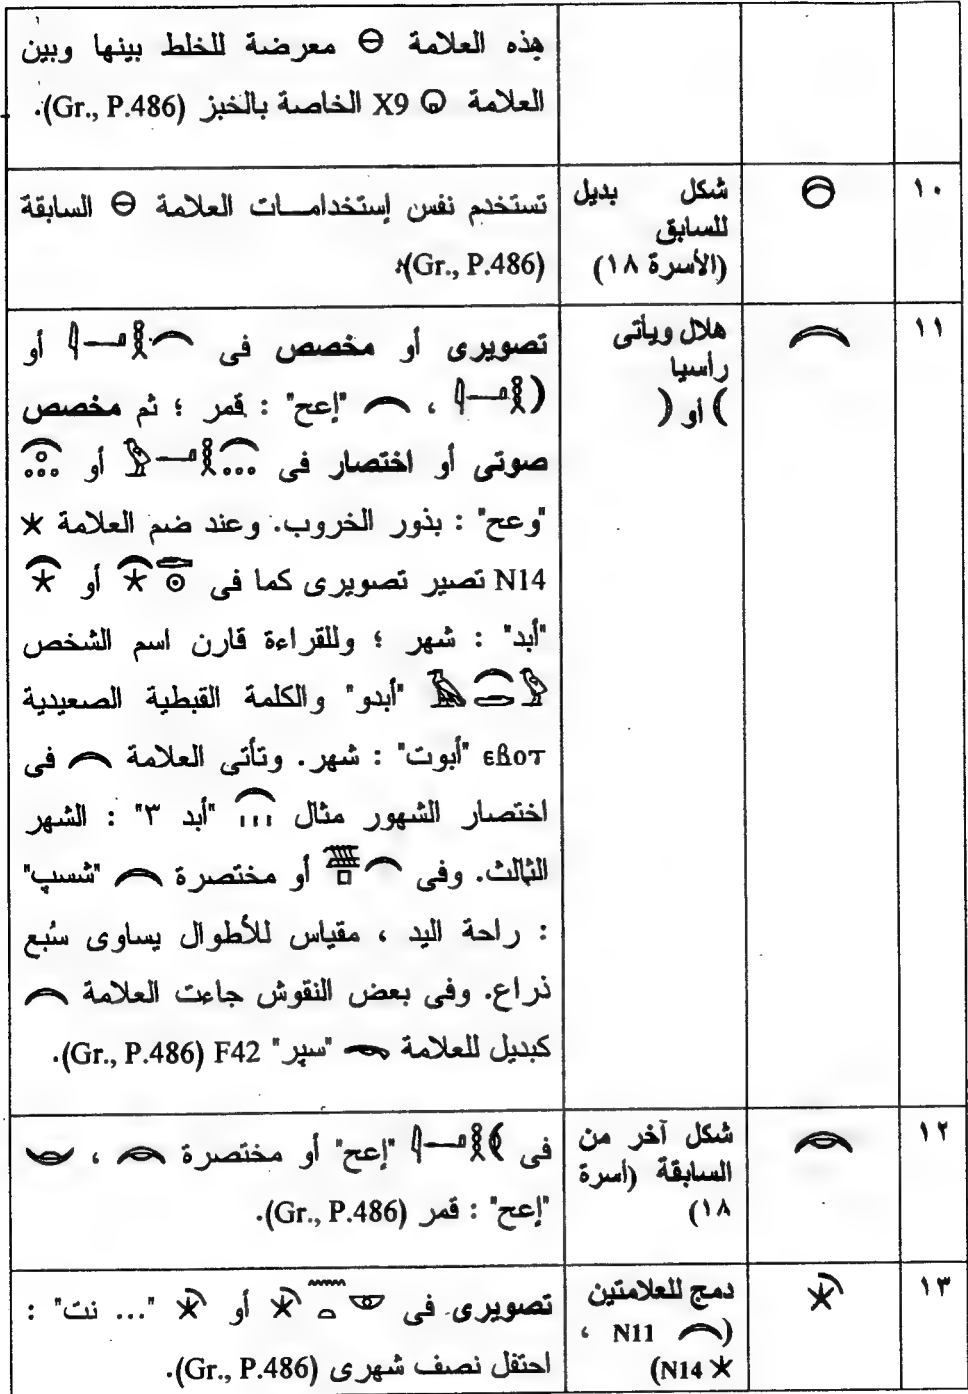 هذه العلامة 𓇷 معرضة للخلط بينها وبين
العلامة X9 الخاصة بالخبز (Gr., P.486).
١٠
𓇸
شكل بديل
للسابق
(الأسرة ١٨)
تستخدم نفس إستخدامات العلامة 𓇷 السابقة
(Gr., P.486).
١١
𓇹
هلال ويأتى
رأسيا
) أو (
تصويرى أو مخصص فى 𓇋𓂝𓎛𓇹 أو
𓇋𓂝𓎛) ، 𓇹 "إعح" : قمر ؛ ثم مخصص
صوتى أو اختصار فى 𓅱𓂝𓎛𓇹 أو 𓇹
"وعح" : بذور الخروب. وعند ضم العلامة 𓇼
N14 تصير تصويرى كما فى 𓇹𓇼𓂧𓇳 أو 𓇹𓇼
"أبد" : شهر ؛ وللقراءة قارن اسم الشخص
𓄿𓇹𓂧𓅱 "أبدو" والكلمة القبطية الصعيدية
ⲉⲃⲟⲧ "أبوت" : شهر. وتأتى العلامة 𓇹 فى
اختصار الشهور مثال 𓇹𓏪 "أبد ٣" : الشهر
الثالث. وفى 𓊏𓊪𓇹 أو مختصرة 𓇹 "شسپ"
: راحة اليد ، مقياس للأطوال يساوى سُبع
ذراع. وفى بعض النقوش جاءت العلامة 𓇹
كبديل للعلامة 𓄋 "سپر" F42 (Gr., P.486).
١٢
𓇺
شكل آخر من
السابقة (أسرة
١٨)
فى 𓇋𓂝𓎛𓇺 "إعح" أو مختصرة 𓇺 ،
"إعح" : قمر (Gr., P.486).
١٣
𓇻
دمج للعلامتين
(𓇹 N11 ،
𓇼 N14)
تصويرى فى 𓇻𓈖𓏏𓎱 أو 𓇻 "... نت" :
احتفل نصف شهرى (Gr., P.486).